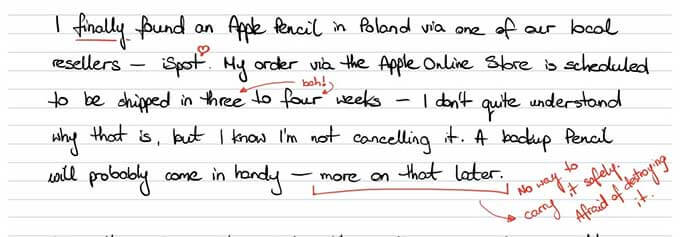 I finally found an Apple Pencil in Poland via one of our local
resellers – iSpot. My order via the Apple Online Store is scheduled
bah!
to be shipped in three to four weeks – I don't quite understand
why that is, but I know I'm not cancelling it. A backup Pencil
will probably come in handy – more on that later.
No way to
carry it safely.
Afraid of destroying
it.